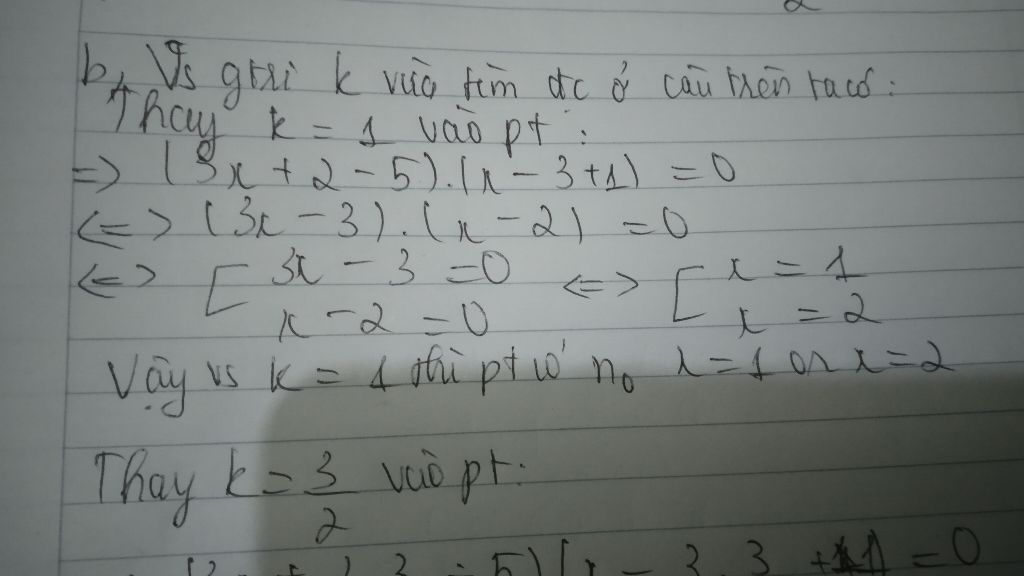 2
b, Vs gtrị k vừa tìm đc ở câu trên ta có:
Thay k = 1 vào pt:
=> (3x + 2 - 5).(x - 3 + 1) = 0
<=> (3x - 3).(x - 2) = 0
<=> [ 3x - 3 = 0 <=> [ x = 1
x - 2 = 0 x = 2
Vậy vs k = 1 thì pt có n₀ x = 1 or x = 2
Thay k = 3/2 vào pt:
3 - 5)(x - 3. 3 + 1) = 0